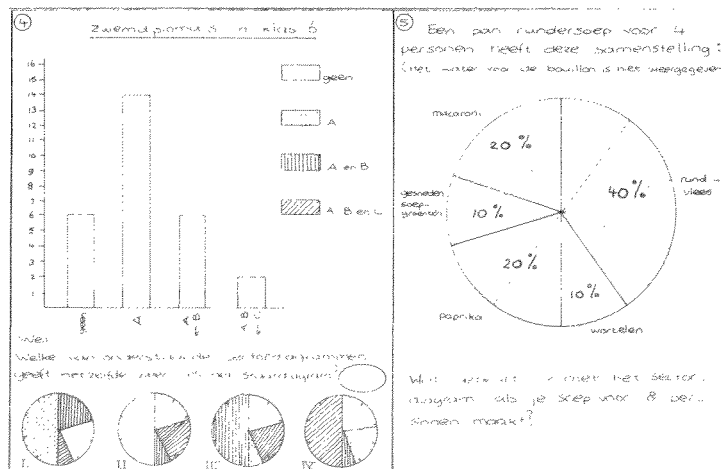 4
Zwemdiploma's in klas 5
16
15
14
13
12
11
10
9
8
7
6
5
4
3
2
1
geen
A
A en B
A B en C
geen
A
A en B
A B en C
Welke van onderstaande
geeft hetzelfde
I
II
III
IV
5
Een pan rundersoep voor 4
personen heeft deze samenstelling:
(het water voor de bouillon is niet weergegeven
macaroni
20%
rund-
vlees
40%
gesneden
soep-
groenten
10%
20%
10%
paprika
wortelen
met het sector-
diagram als je soep voor 8 per-
sonen maakt?